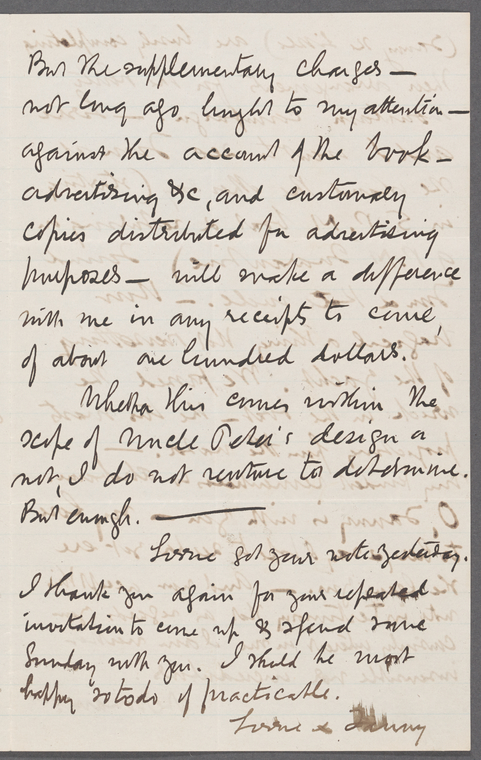 But the supplementary charges —
not long ago brought to my attention —
against the account of the book —
advertising &c, and customary
copies distributed for advertising
purposes — will make a difference
with me in any receipts to come,
of about one hundred dollars.
Whether this comes within the
scope of Uncle Peter's design or
not, I do not venture to determine.
But enough. —
got your note yesterday.
I thank you again for your repeated
invitation to come up & spend some
Sunday with you. I shold be most
happy so to do if practicable.
& Fanny